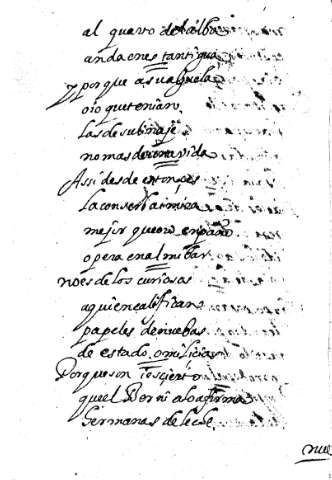 al quarto del alba
anda en estantigua
y porque a su aguela
oio que tenian
las de su linaje
no mas de una vida
Assi desde entonces
la conserba i mira
mejor que oro en paño
o pera en almibar
no es de los curiosos
a quien califican
papeles de nuebas
de estado o milicia
Porque son i es cierto
que el Berni a lo afirma
hermanas de leche
nue